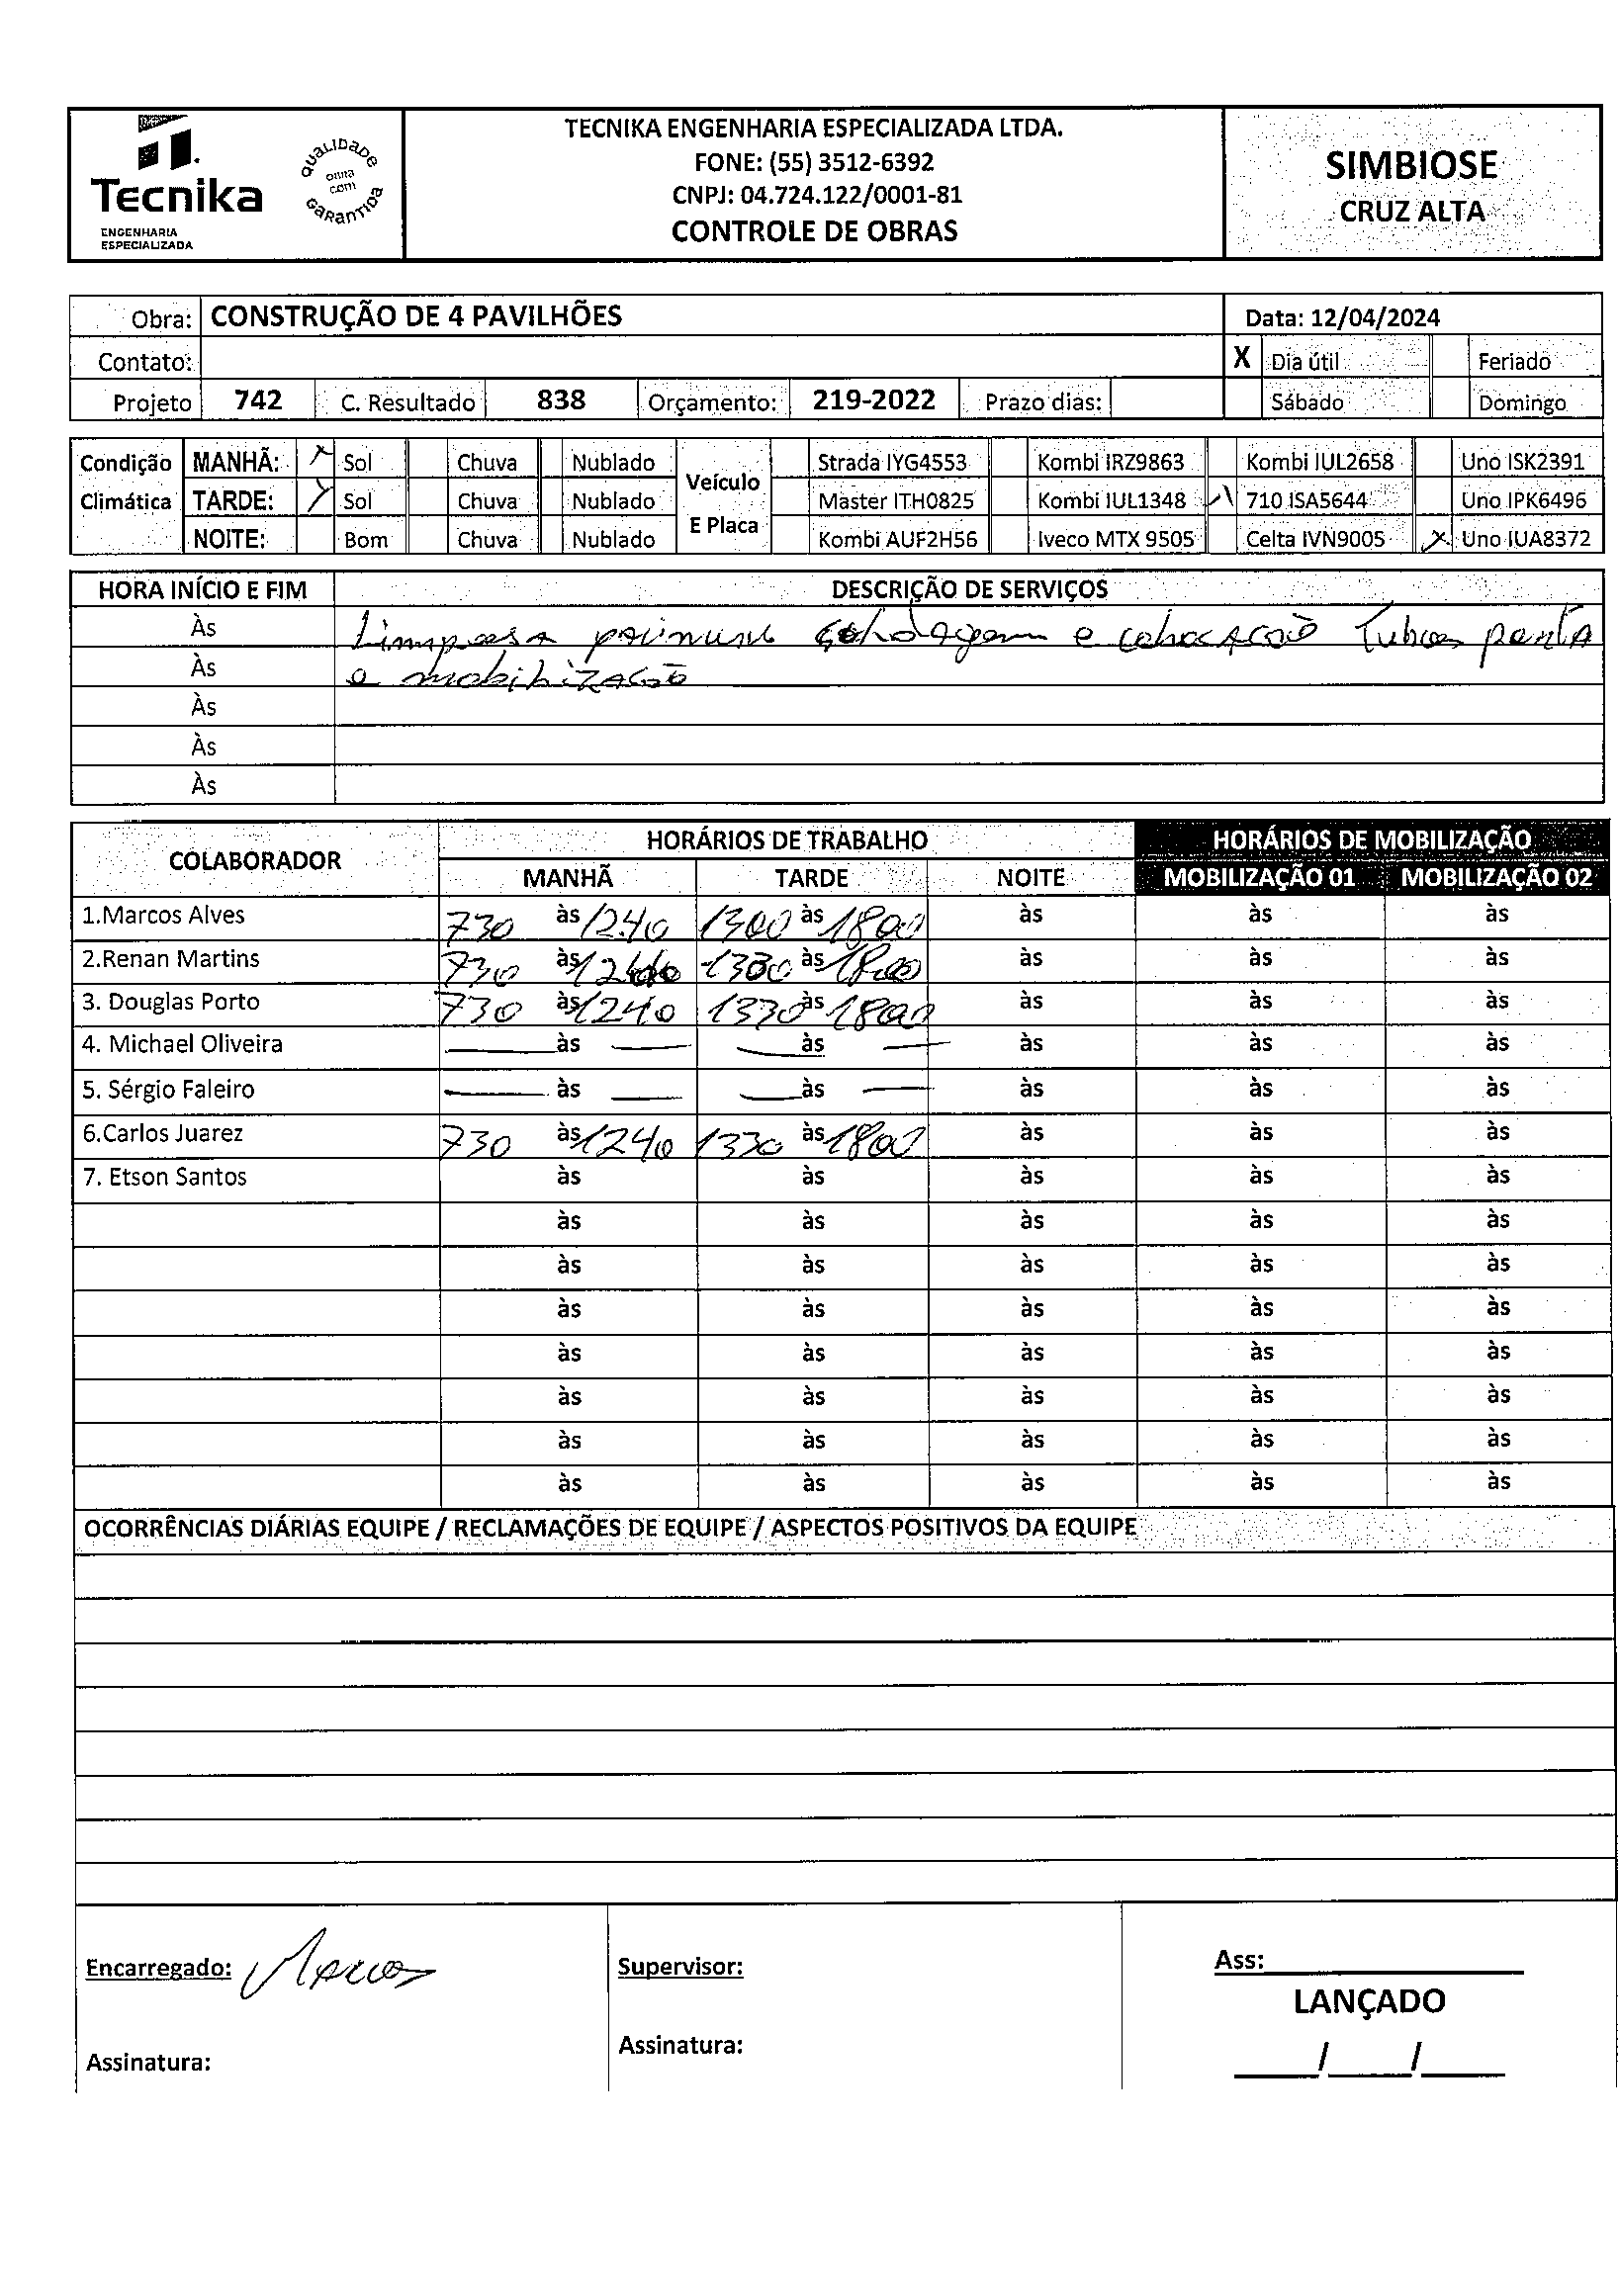 Tecnika
ENGENHARIA
ESPECIALIZADA
QUALIDADE
obra
com
GARANTIDA
TECNIKA ENGENHARIA ESPECIALIZADA LTDA.
FONE: (55) 3512-6392
CNPJ: 04.724.122/0001-81
CONTROLE DE OBRAS
SIMBIOSE
CRUZ ALTA
Obra: CONSTRUÇÃO DE 4 PAVILHÕES Data: 12/04/2024
Contato: X Dia útil Feriado
Projeto 742 C. Resultado 838 Orçamento: 219-2022 Prazo dias: Sábado Domingo
Condição Climática
MANHÃ: X Sol Chuva Nublado
TARDE: X Sol Chuva Nublado
NOITE: Bom Chuva Nublado
Veículo E Placa
Strada IYG4553 Kombi IRZ9863 Kombi IUL2658 Uno ISK2391
Master ITH0825 Kombi IUL1348 710 ISA5644 Uno IPK6496
Kombi AUF2H56 Iveco MTX 9505 Celta IVN9005 X Uno IUA8372
HORA INÍCIO E FIM DESCRIÇÃO DE SERVIÇOS
Às e colocação Tubos
Às e mobilização
Às
Às
Às
COLABORADOR HORÁRIOS DE TRABALHO HORÁRIOS DE MOBILIZAÇÃO
MANHÃ TARDE NOITE MOBILIZAÇÃO 01 MOBILIZAÇÃO 02
1.Marcos Alves 730 às 1240 1300 às 1800 às às às
2.Renan Martins 730 às às 1800 às às às
3. Douglas Porto 730 às 1240 1330 às 1800 às às às
4. Michael Oliveira — às — — às — às às às
5. Sérgio Faleiro — às — — às — às às às
6.Carlos Juarez 730 às 1240 1330 às 1800 às às às
7. Etson Santos às às às às às
às às às às às
às às às às às
às às às às às
às às às às às
às às às às às
às às às às às
às às às às às
OCORRÊNCIAS DIÁRIAS EQUIPE / RECLAMAÇÕES DE EQUIPE / ASPECTOS POSITIVOS DA EQUIPE
Encarregado: Marcos
Assinatura:
Supervisor:
Assinatura:
Ass:
LANÇADO
____/____/____